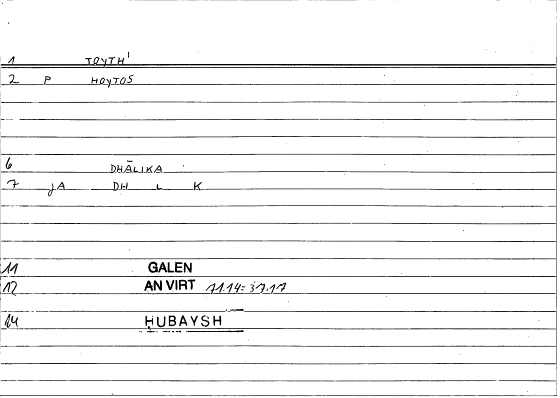 1 TOYTH'
2 P HOYTOS
6 DHĀLIKA
7 JA DH L K
11 GALEN
12 AN VIRT 71.14=37.17
24 ḤUBAYSH